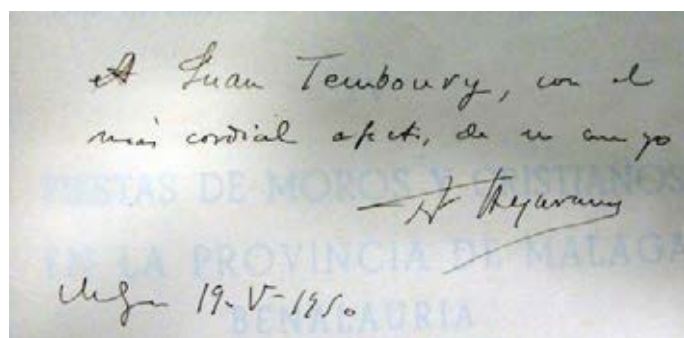 A Juan Temboury, con el
más cordial afecto, de su amigo
FIESTAS DE MOROS Y CRISTIANOS
EN LA PROVINCIA DE MALAGA
19-V-1950
BENALAURIA